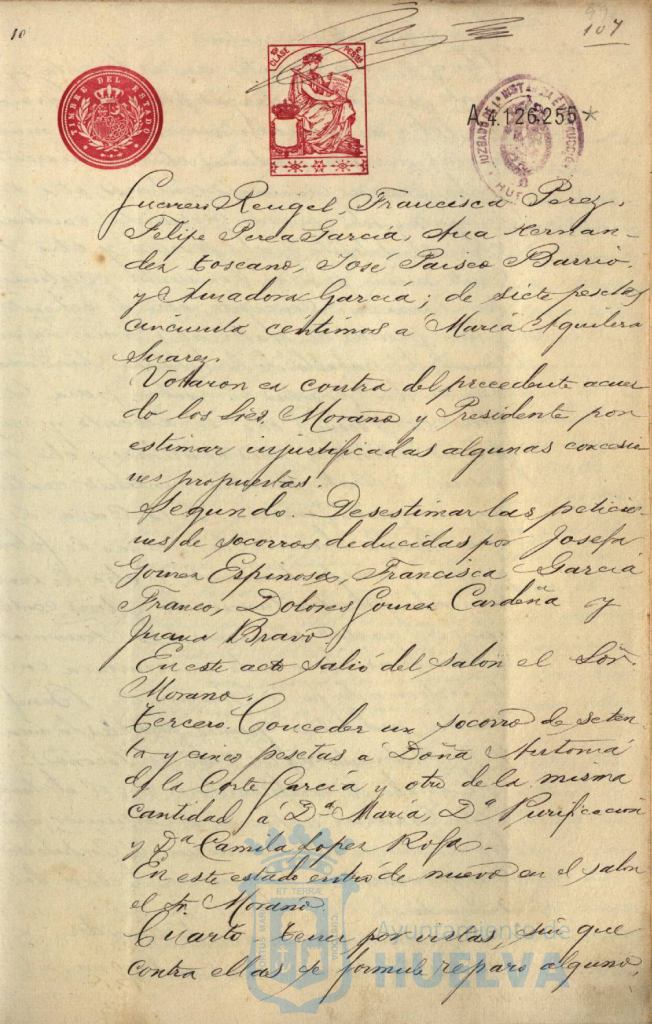 10
99
107
TIMBRE DEL ESTADO
CLASE
PESETAS
A.4.126.255*
JUZGADO DE 1ª INSTANCIA E INSTRUCCIÓN
HUELVA
Guerrero Rengel, Francisca Perez,
Felipe Perea García, Ana Hernan-
dez Toscano, José Paisco Barrio,
y Amadora García; de siete pesetas
cincuenta céntimos á María Aguilera
Suarez.
Votaron en contra del precedente acuer
do los Sres. Morano y Presidente por
estimar injustificadas algunas concesio
nes propuestas.
Segundo. Desestimar las peticio-
nes de socorros deducidas por Josefa
Gomez Espinosa, Francisca García
Franco, Dolores Gomez Cardeña y
Juana Bravo.
En este acto salió del salón el Sor.
Morano.
Tercero. Conceder un socorro de seten-
ta y cinco pesetas á Doña Antonia
de la Corte García y otro de la misma
cantidad á Dª María, Dª Purificación
y Dª Camila Lopez Rofa.
En este estado entró de nuevo en el salón
el Sr. Morano.
Cuarto. Tener por vistas, sin que
contra ellas se formule reparo alguno,
Ayuntamiento de
HUELVA